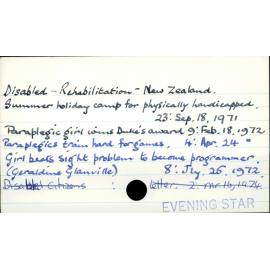 Disabled - Rehabilitation - New Zealand.
Summer holiday camp for physically handicapped.
23: Sep. 18, 1971
Paraplegic girl wins Duke's award 9: Feb. 18, 1972
Paraplegics train hard for games. 4: Apr. 24 "
Girl beats sight problem to become programmer.
(Geraldine Glanville) 8: Jly. 26, 1972
Disabled Citizens : letter. 2. Mr 16, 1974
EVENING STAR